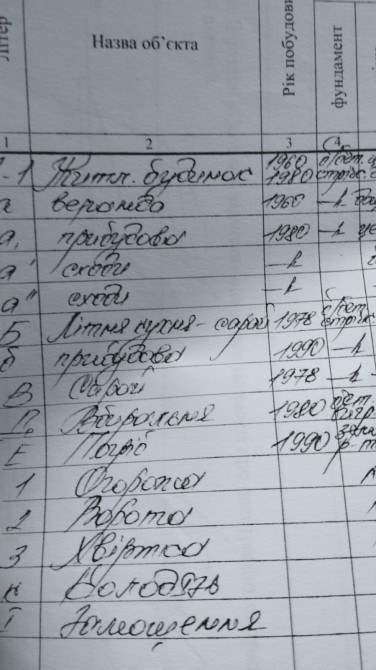 Літер
Назва об'єкта
Рік побудови
фундамент
1 2 3 4
-1 Житл. будинок 1960 1980 б/бет.
а веранда 1960 -"-
а, прибудова 1980 -"-
а' сходи -"-
а" сходи -"-
Б Літня кухня - сарай 1978 б/бет.
б прибудова 1990 -"-
В Сарай 1978 -"-
Вбиральня 1980 бет.
Е Погріб 1990
1 Огорожа
2 Ворота
3 Хвіртка
к Колодязь
І Замощення